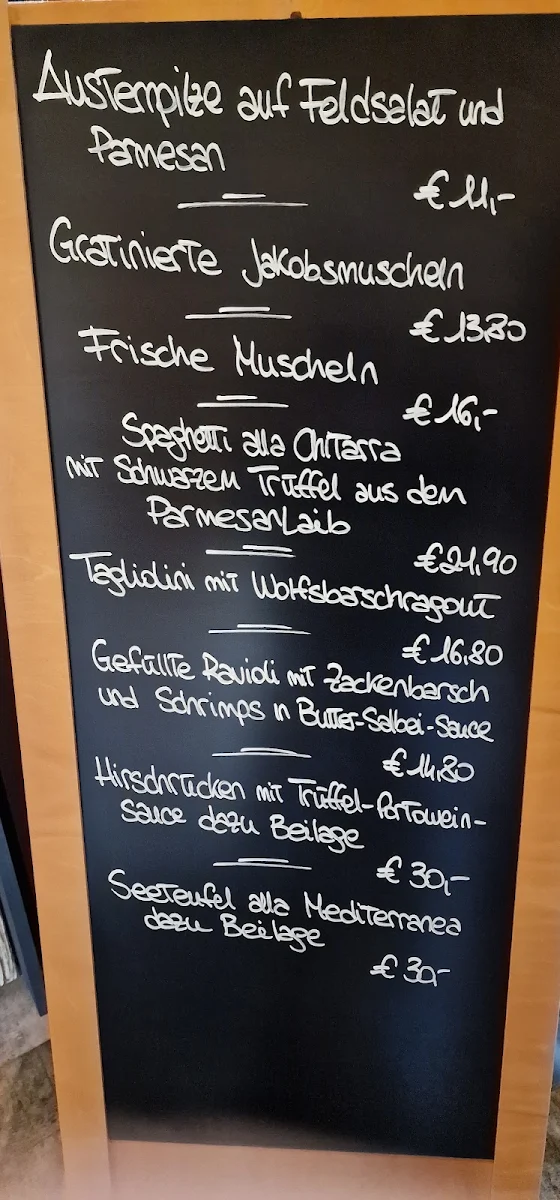 Austernpilze auf Feldsalat und
Parmesan
€ 11,-
Gratinierte Jakobsmuscheln
€ 13,80
Frische Muscheln
€ 16,-
Spaghetti alla Chitarra
mit Schwarzem Trüffel aus dem
Parmesanlaib
€ 21,90
Tagliolini mit Wolfsbarschragout
€ 16,80
Gefüllte Ravioli mit Zackenbarsch
und Schrimps in Butter-Salbei-Sauce
€ 14,80
Hirschrücken mit Trüffel-Portowein-
sauce dazu Beilage
€ 30,-
Seeteufel alla Mediterranea
dazu Beilage
€ 30,-